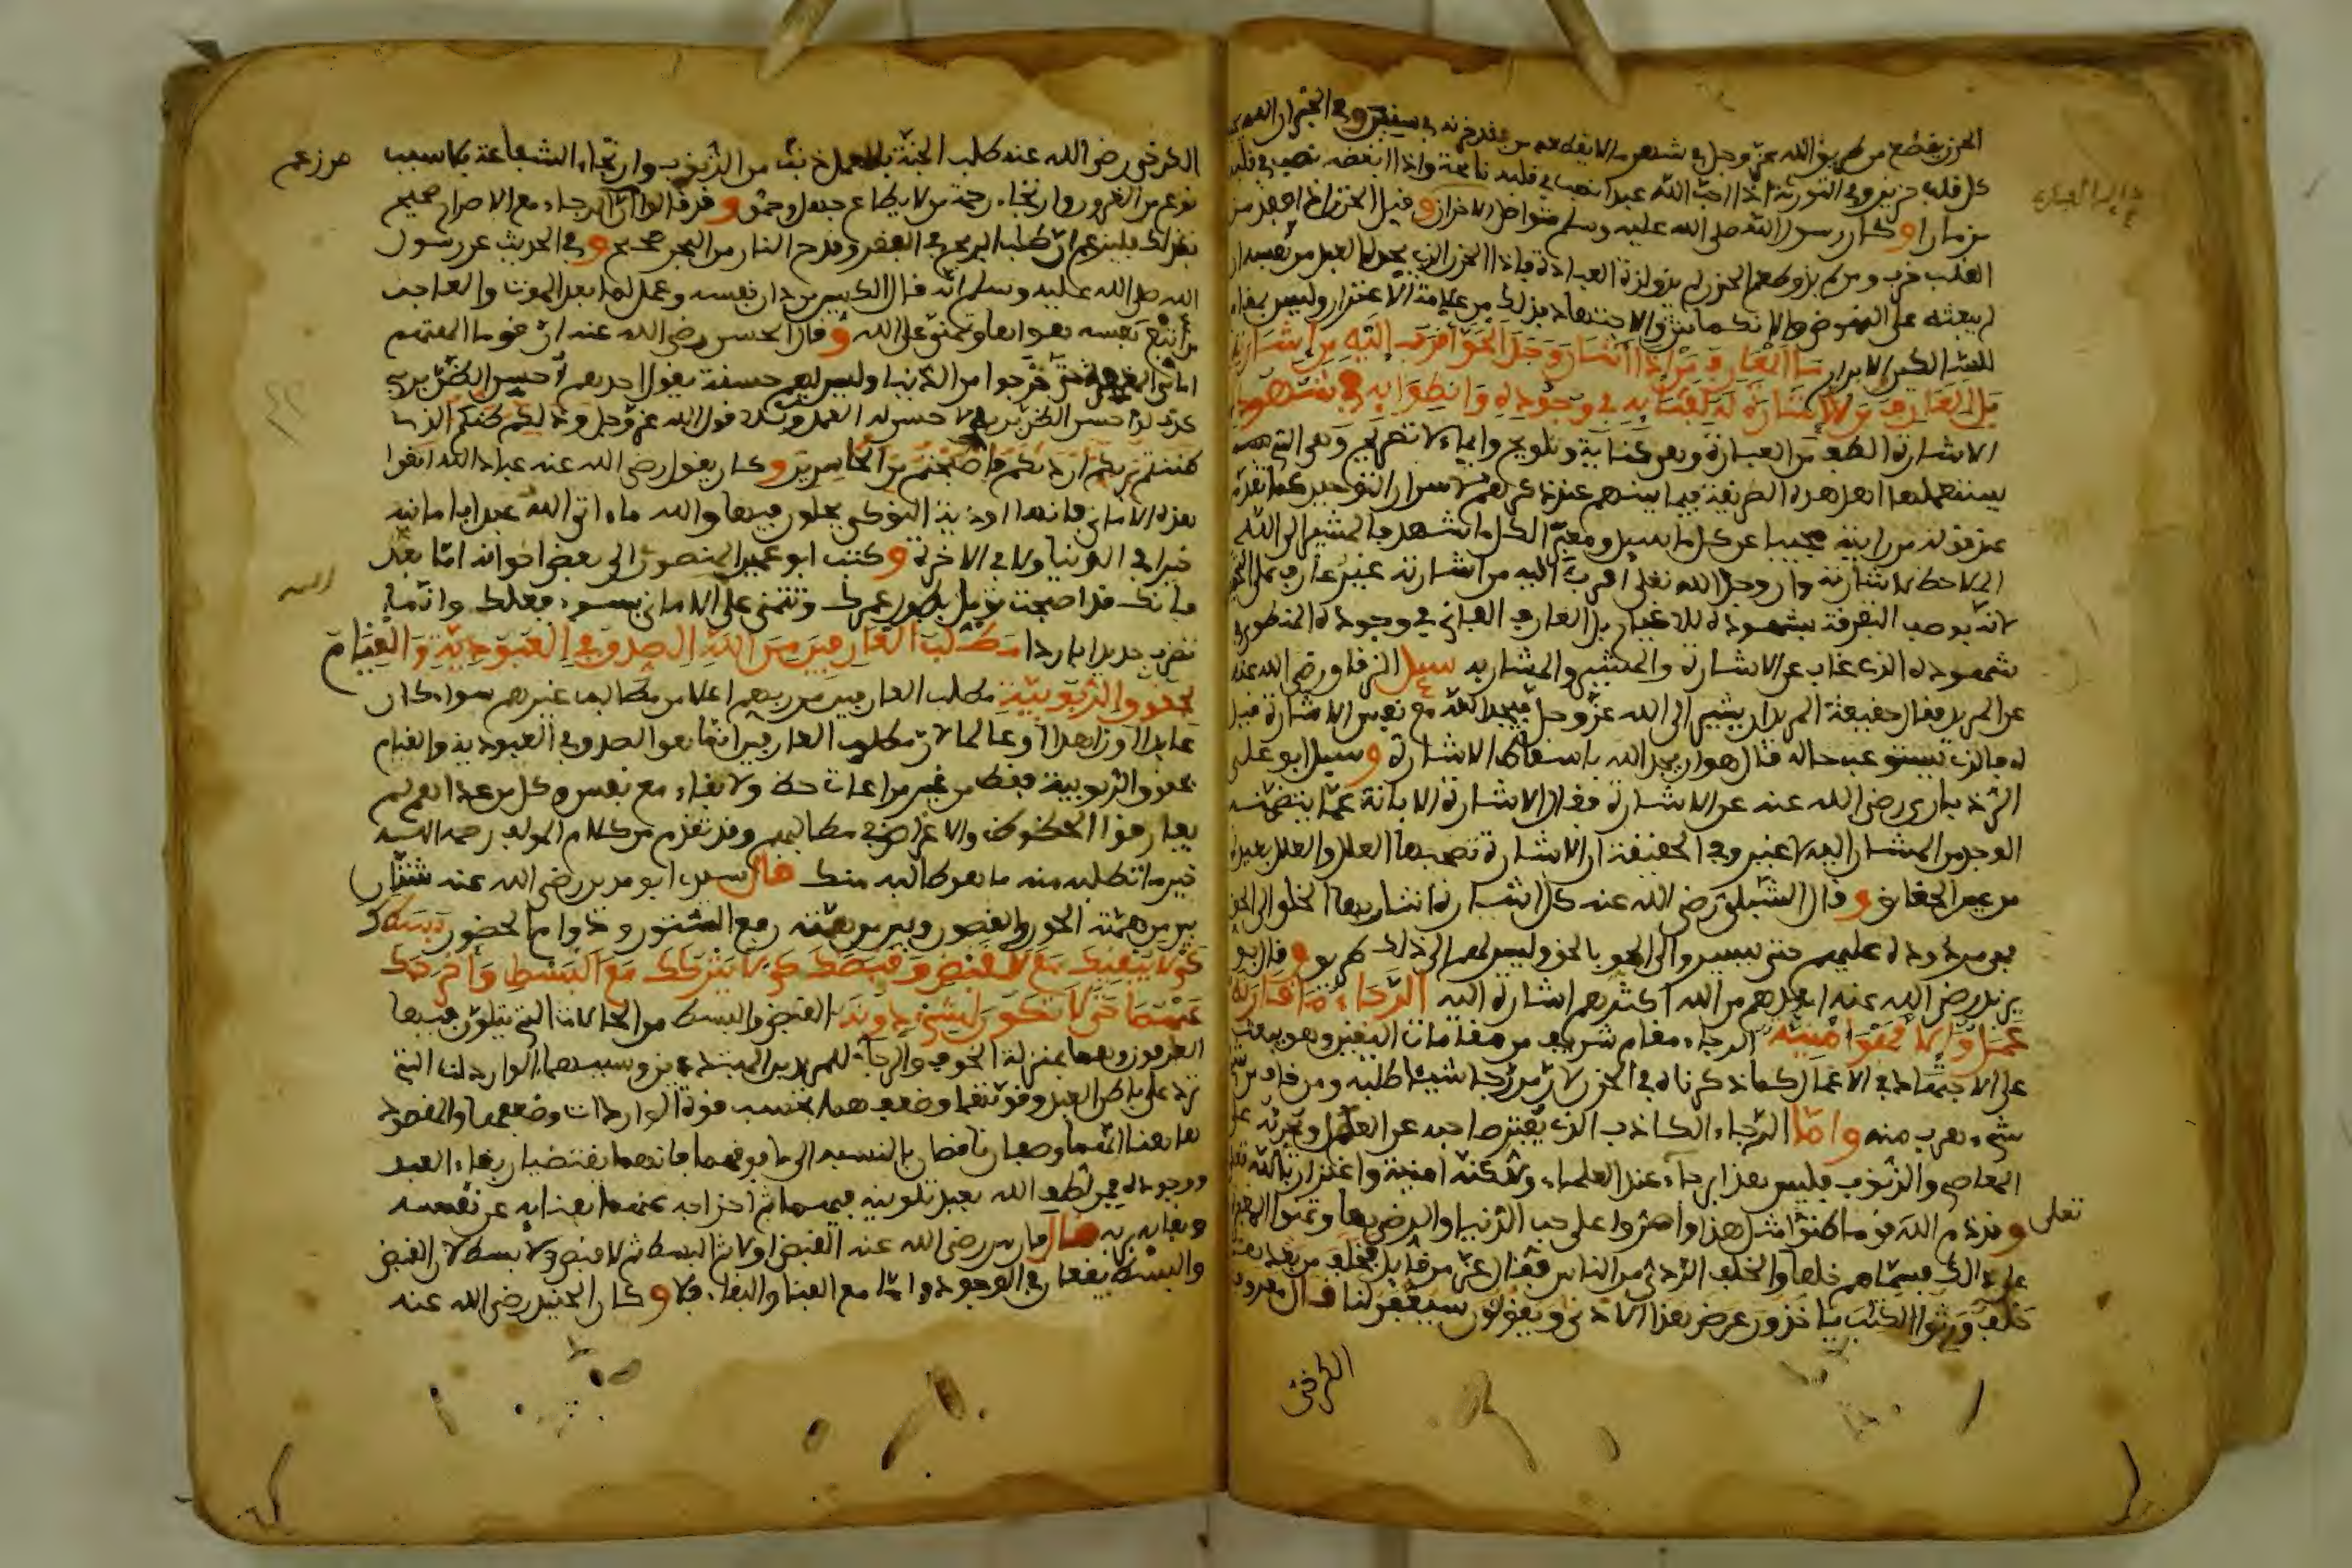 الحزن يقطع من طريق الله عز وجل في شهر ما لا يقطعه من فقد حزنه في سنين وفي الخبر ان الله يحب
كل قلب حزين وفي التورية اذا احب الله عبدا نصب في قلبه نائحة واذا ابغضه نصب في قلبه
مزمارا وكان رسول الله صلى الله عليه وسلم متواصل الاحزان وقيل الحزن اذا فقد من
القلب خرب ومن لم يذق طعم الحزن لم يذق لذة العبادة فاذا الحزن الذي يجده العبد من نفسه ان
لم يبعثه على النهوض والانكماش والاجتهاد فذلك من علامة الاغترار وليس بمقام
ما العارف من اذا اشار وجد الحق اقرب اليه من اشارته
بل العارف من لا اشارة له لفنايه في وجوده وانطوايه في شهوده
الاشارة الطف من العبارة وهي كناية وتلويح وايماء لا تصريح وهي التي
يستعملها اهل هذه الطريقة فيما بينهم عند ذكرهم لاسرار التوحيد كما تقدم
عند قوله من رايته مجيبا عن كل ما سيل ومعبرا لكل ما شهد فالمشير الى الله
الملاحظ لاشارته وان وجد الله تعلى اقرب اليه من اشارته غير عارف على التحقيق
لانه يوصف التفرقة بشهوده للاغيار بل العارف الفاني في وجوده المنطوي في
شهوده الذي غاب عن الاشارة والمشير والمشار به سيل الزقاق رضي الله عنه
عن المريد فقال حقيقة المريد ان يشير الى الله عز وجل فيجد الله مع نفس الاشارة قيل
له فالذي يستوعب حاله قال هو ان يجد الله باسقاط الاشارة وسيل ابو علي
الرذباري رضي الله عنه عن الاشارة فقال الاشارة الابانة عما يتضمنه
الوجد من المشار اليه لا غير وفي الحقيقة ان الاشارة تصحبها العلل والعلل بعيدة
من عين الحقائق وقال الشبلي رضي الله عنه كل اشارة اشار بها الخلق الى الحق
فهي مردودة عليهم حتى يسيروا الى الحق بالحق وليس لهم الى ذلك طريق وقال ابو
يزيد رضي الله عنه ابعدهم من الله اكثرهم اشارة اليه الرجاء ما قارنه
عمل والا فهو امنية الرجاء مقام شريف من مقامات اليقين وهو يبعث
على الاجتهاد في الاعمال كما ذكرناه في الحزن لان من رجا شيئا طلبه ومن خاف من
شيء هرب منه واما الرجاء الكاذب الذي يفتر صاحبه عن العمل ويجرئه على
المعاصي والذنوب فليس هذا برجاء عند العلماء ولكنه امنية واغترار بالله تعلى
وقد ذم الله قوما ظنوا مثل هذا واصروا على حب الدنيا والرضى بها وتمنوا المغفرة
على ذلك فسماهم خلفا والخلف الردئ من الناس فقال عز من قايل فخلف من بعدهم
خلف ورثوا الكتب ياخذون عرض هذا الادنى ويقولون سيغفر لنا قال معروف
الكرخي
الكرخي رضي الله عنه طلب الجنة بلا عمل ذنب من الذنوب وارتجاء الشفاعة بلا سبب
نوع من الغرور وارتجاء رحمة من لا يطاع جهل وحمق وقد قالوا ان الرجاء مع الاصرار صحيح
من زعم
الله صلى الله عليه وسلم انه قال الكيس من دان نفسه وعمل لما بعد الموت والعاجز
من اتبع نفسه هواها وتمنى على الله وقال الحسن رضي الله عنه ان قوما الهتهم
اماني المغفرة حتى خرجوا من الدنيا وليس لهم حسنة يقول احدهم احسن الظن بربي
كذب لو احسن الظن بربه لاحسن له العمل وتلا قول الله عز وجل وذلكم ظنكم الذي
ظننتم بربكم ارديكم فاصبحتم من الخاسرين وكان يقول رضي الله عنه عباد الله اتقوا
هذه الاماني فانها اودية النوكى يحلون فيها والله ما اتى الله عبدا بامانيه
خيرا في الدنيا ولا في الاخرة وكتب ابو عمير المنصوري الى بعض اخوانه اما بعد
فانك قد اصبحت تومل بطول عمرك وتتمنى على الله الاماني بسوء فعلك وانما
تضرب حديدا باردا مطلب العارفين من الله الصدق في العبودية والقيام
بحقوق الربوبية مطلب العارفين من ربهم اعلا من مطالب غيرهم سواء كان
عابدا او زاهدا او عالما لان مطلوب العارفين انما هو الصدق في العبودية والقيام
بحقوق الربوبية فقط من غير مراعات حظ ولا بقاء مع نفس وكل من عداهم لم
يفارقوا الحظوظ والاغراض في مطالبهم وقد تقدم من كلام المولف رحمه الله
خير ما تطلبه منه ما هو طالبه منك قال سيدي ابو مدين رضي الله عنه شتان
بين من همته الحور والقصور وبين من همته رفع الستور ودوام الحضور بسطك
كي لا يبقيك مع القبض وقبضك كي لا يتركك مع البسط واخرجك
عنهما حتى لا تكون لشيء دونه القبض والبسط من الحالات التي يتلون فيها
العارفون وهما بمنزلة الخوف والرجاء للمريدين المبتدءين وسببهما الواردات التي
ترد على باطن العبد وقوتهما وضعفهما بحسب قوة الواردات وضعفها والمقصود
هاهنا انهما وصفان ناقصان بالنسبه الى ما فوقهما فانهما يقتضيان بقاء العبد
ووجوده فمن لطف الله بعبده تلوينه فيهما ثم اخراجه عنهما بفنايه عن نفسه
وبقايه بربه قال فارس رضي الله عنه القبض اولا ثم البسط ثم لا قبض ولا بسط لان القبض
والبسط يقعان في الوجود واما مع الفناء والبقاء فلا وكان الجنيد رضي الله عنه